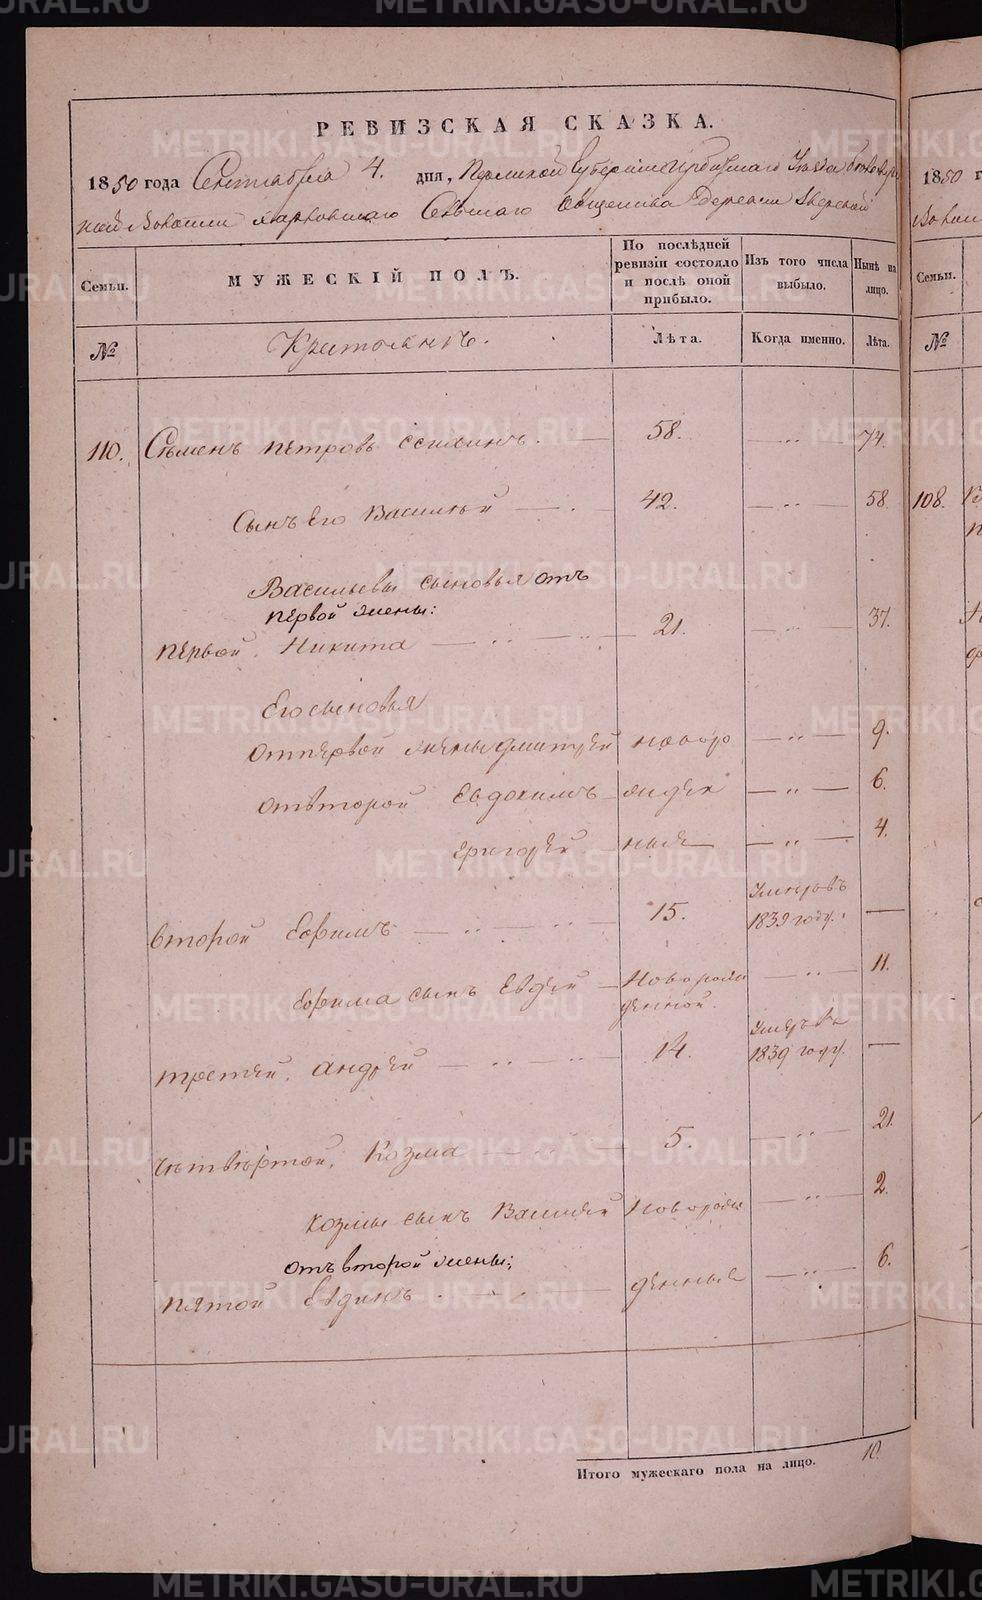 РЕВИЗСКАЯ СКАЗКА.
1850 года Сентября 4. дня, Пермской Губернии Ирбитскаго Уезда
ной Волости Харловскаго Сельскаго Общества Деревни Зверевой
Семьи.
МУЖЕСКІЙ ПОЛЪ.
По послѣдней ревизіи состояло и послѣ оной прибыло.
Изъ того числа выбыло.
Нынѣ на лицо.
№
Крестьянъ.
Лѣта.
Когда именно.
Лѣта.
110. Семенъ Петровъ 58. — " — 74.
Сынъ Его Василей — . — 42. — " — 58.
Васильевы сыновья отъ
первой жены:
первой. Никита — " — " — 21. — " — 37.
Его сыновья
от первой жены Дмитрей новоро — " — 9.
от второй Евдокимъ — жден — " — 6.
Григорей — ные — — " — 4.
второй Ефимъ — " — " — 15. Умеръ въ 1839 году. —
Ефима сынъ Евдей — Новорож денной. — " — 11.
третей. Андрей — " — " — 14. Умеръ въ 1839 году. —
четвертой. Козма — " — 5. — " — 21.
Козмы сынъ Василей Новорож — " — 2.
отъ второй жены:
пятой — денныя — " — 6.
Итого мужескаго пола на лицо. 10.
1850
Семьи.
№
108.
METRIKI.GASO-URAL.RU